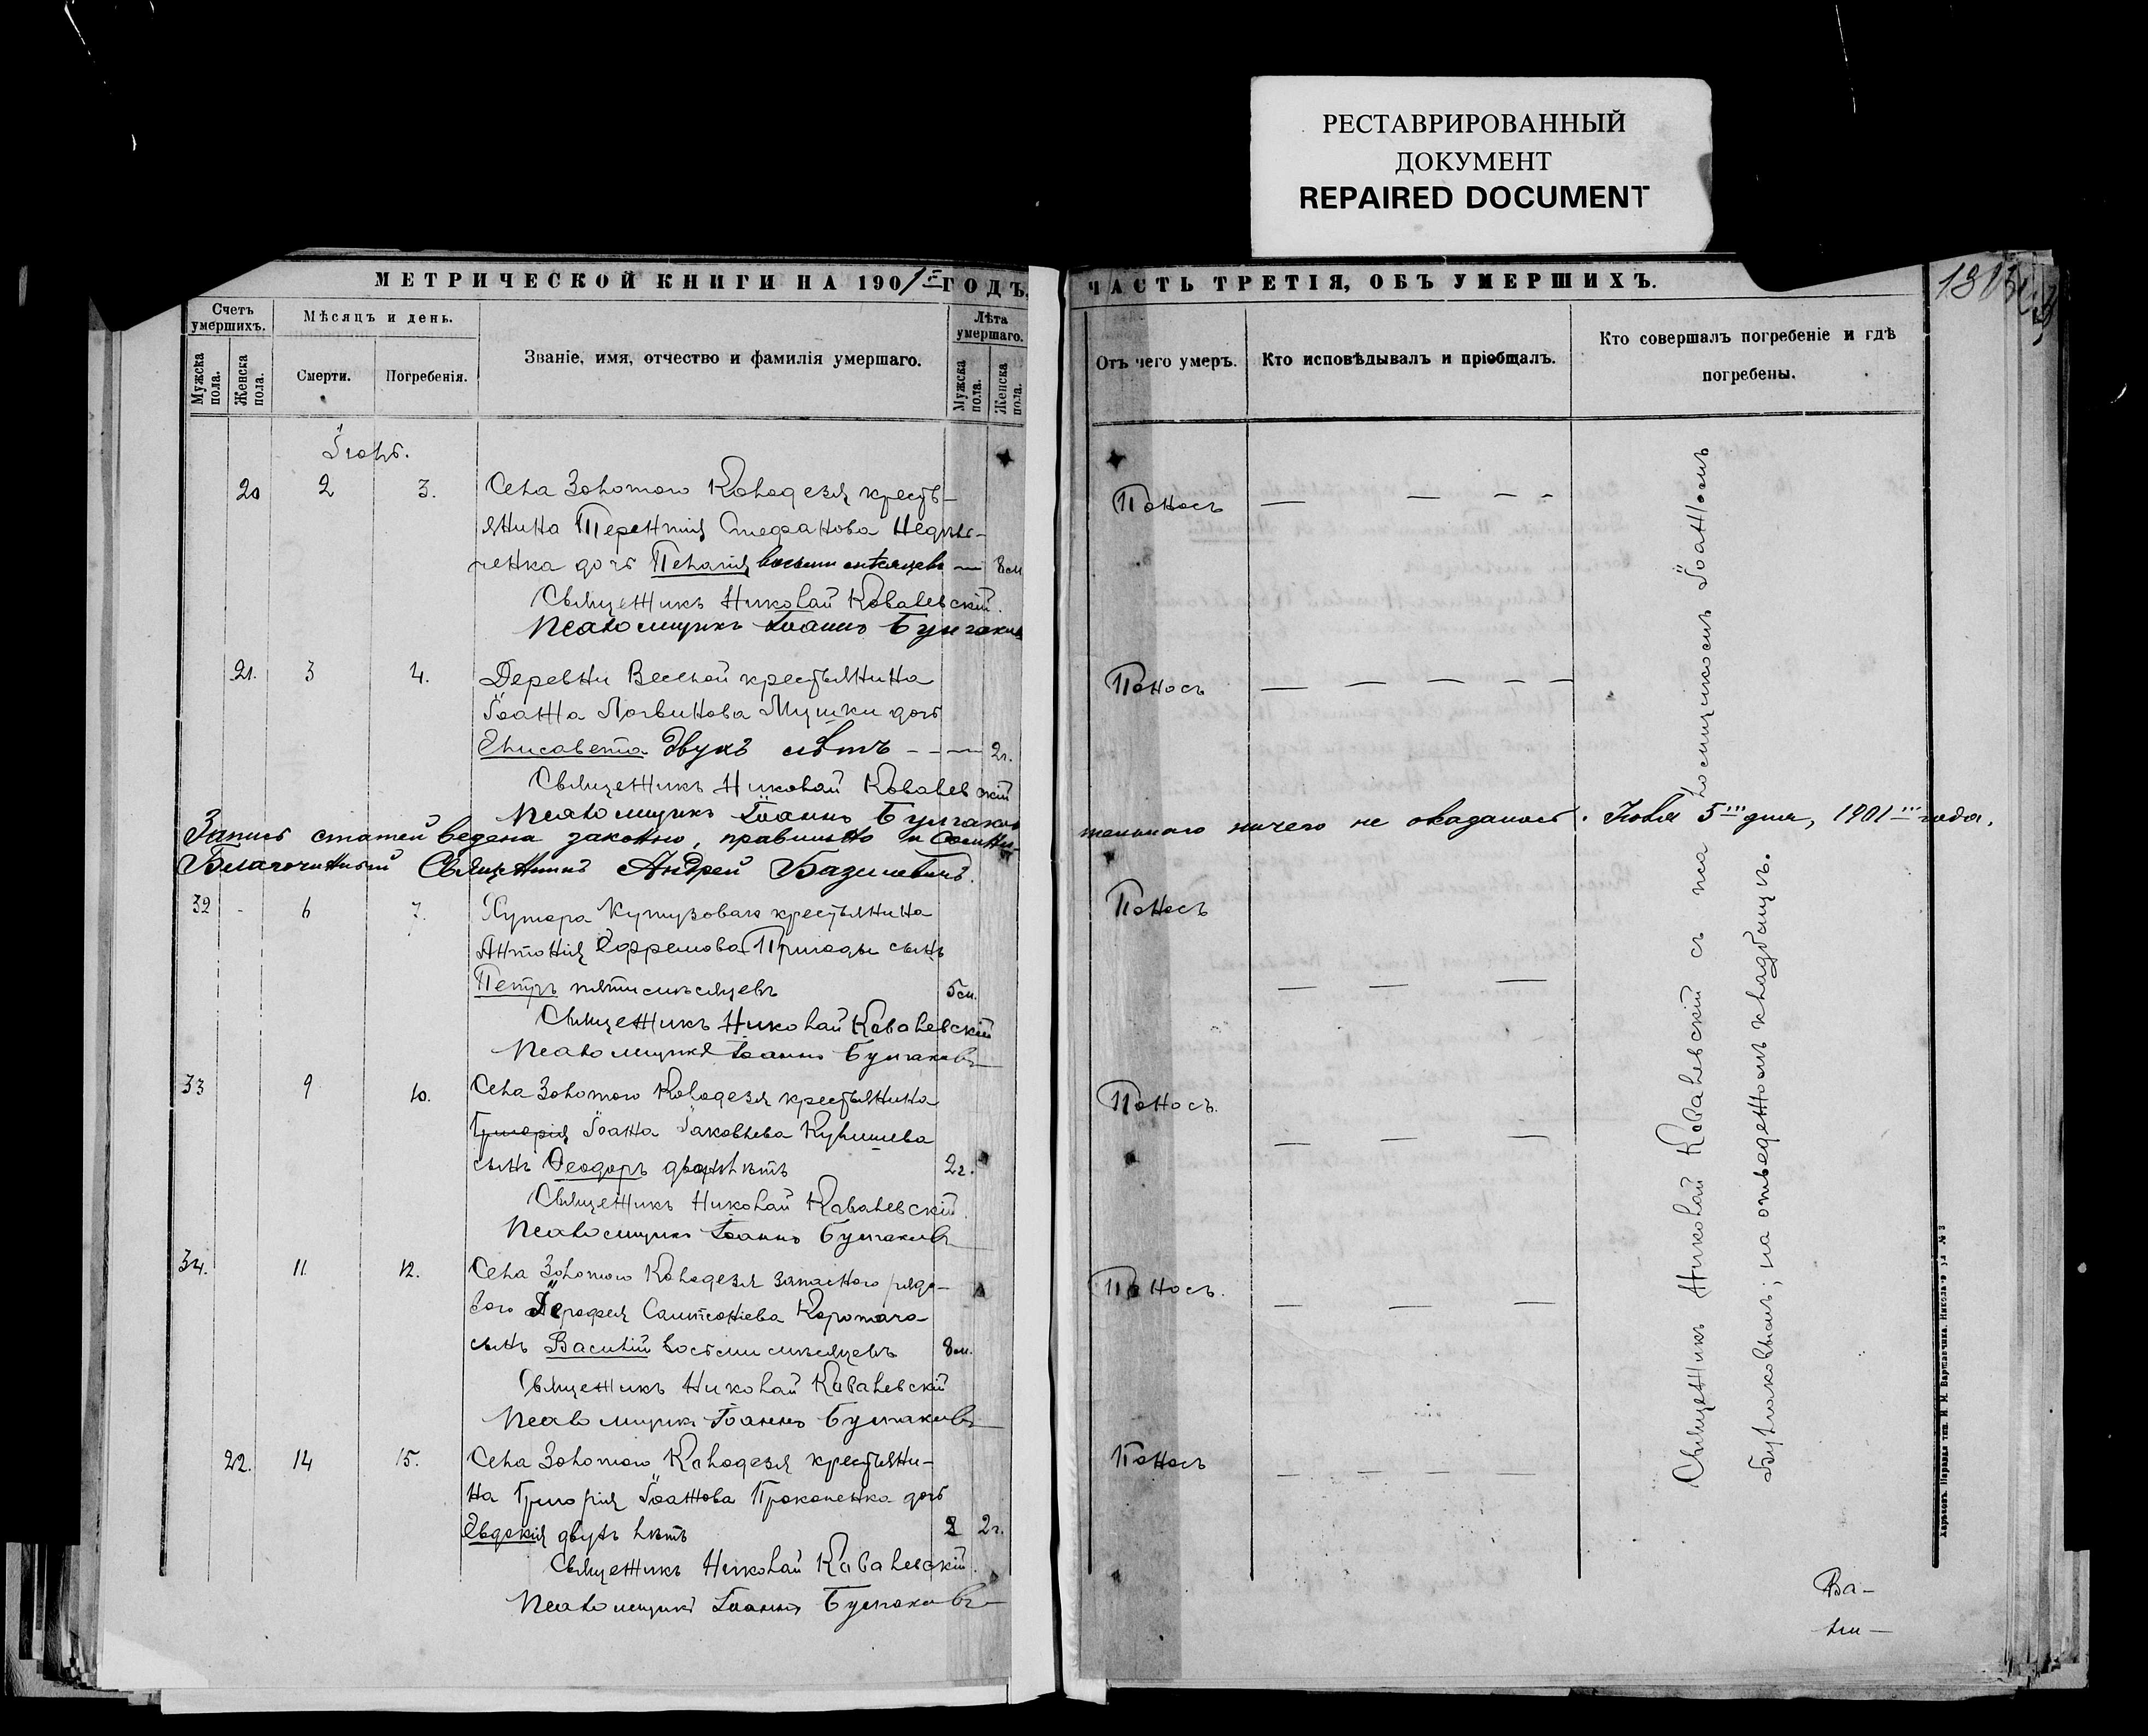 РЕСТАВРИРОВАННЫЙ
ДОКУМЕНТ
REPAIRED DOCUMENT
МЕТРИЧЕСКОЙ КНИГИ НА 1901 ГОДЪ,
ЧАСТЬ ТРЕТІЯ, ОБЪ УМЕРШИХЪ.
Счетъ умершихъ.
Мужска пола.
Женска пола.
Мѣсяцъ и день.
Смерти.
Погребенія.
Званіе, имя, отчество и фамилія умершаго.
Лѣта умершаго.
Мужска пола.
Женска пола.
Отъ чего умеръ.
Кто исповѣдывалъ и пріобщалъ.
Кто совершалъ погребеніе и гдѣ
погребены.
20 2 3. Села Золотого Колодезя кресть-
Поносъ
янина Терентія Стефанова
ченка дочь Пелагія восьми мѣсяцевъ — 8 м
Священникъ Николай Ковалевскій.
Псаломщикъ Іоаннъ Булгаковъ
21. 3 4. Деревни Веселой крестьянина
Поносъ
Іоанна Логвинова Мушки дочь
Елисавета двухъ лѣтъ - - — 2 г.
Священникъ Николай Ковалевскій
Псаломщикъ Іоаннъ Булгаковъ
Запись статей ведена законно, правильно и сомни-
тельнаго ничего не оказалось. 5 дня, 1901 года.
Благочинный Священникъ Андрей Базилевичъ.
32 - 6 7. Хутора Кутузоваго крестьянина
Поносъ
Антонія Ефремова Пригоды сынъ
Петръ пяти мѣсяцевъ 5 м.
Священникъ Николай Ковалевскій
Псаломщикъ Іоаннъ Булгаковъ
33 9 10. Села Золотого Колодезя крестьянина
Поносъ.
Григорія Іоанна Іаковлева
сынъ Ѳеодоръ двухъ лѣтъ 2 г.
Священникъ Николай Ковалевскій.
Псаломщикъ Іоаннъ Булгаковъ
34. 11. 12. Села Золотого Колодезя запасного рядо-
Поносъ.
вого Сампсоніева
сынъ Василій восьми мѣсяцевъ 8 м.
Священникъ Николай Ковалевскій
Псаломщикъ Іоаннъ Булгаковъ
22. 14 15. Села Золотого Колодезя крестьяни-
Поносъ
на Григорія Іоаннова Прокопенка дочь
Евдокія двухъ лѣтъ 2 г.
Священникъ Николай Ковалевскій.
Псаломщикъ Іоаннъ Булгаковъ
Священникъ Николай Ковалевскій съ псаломщикомъ Іоанномъ
Булгаковымъ; на отведенномъ кладбищѣ.